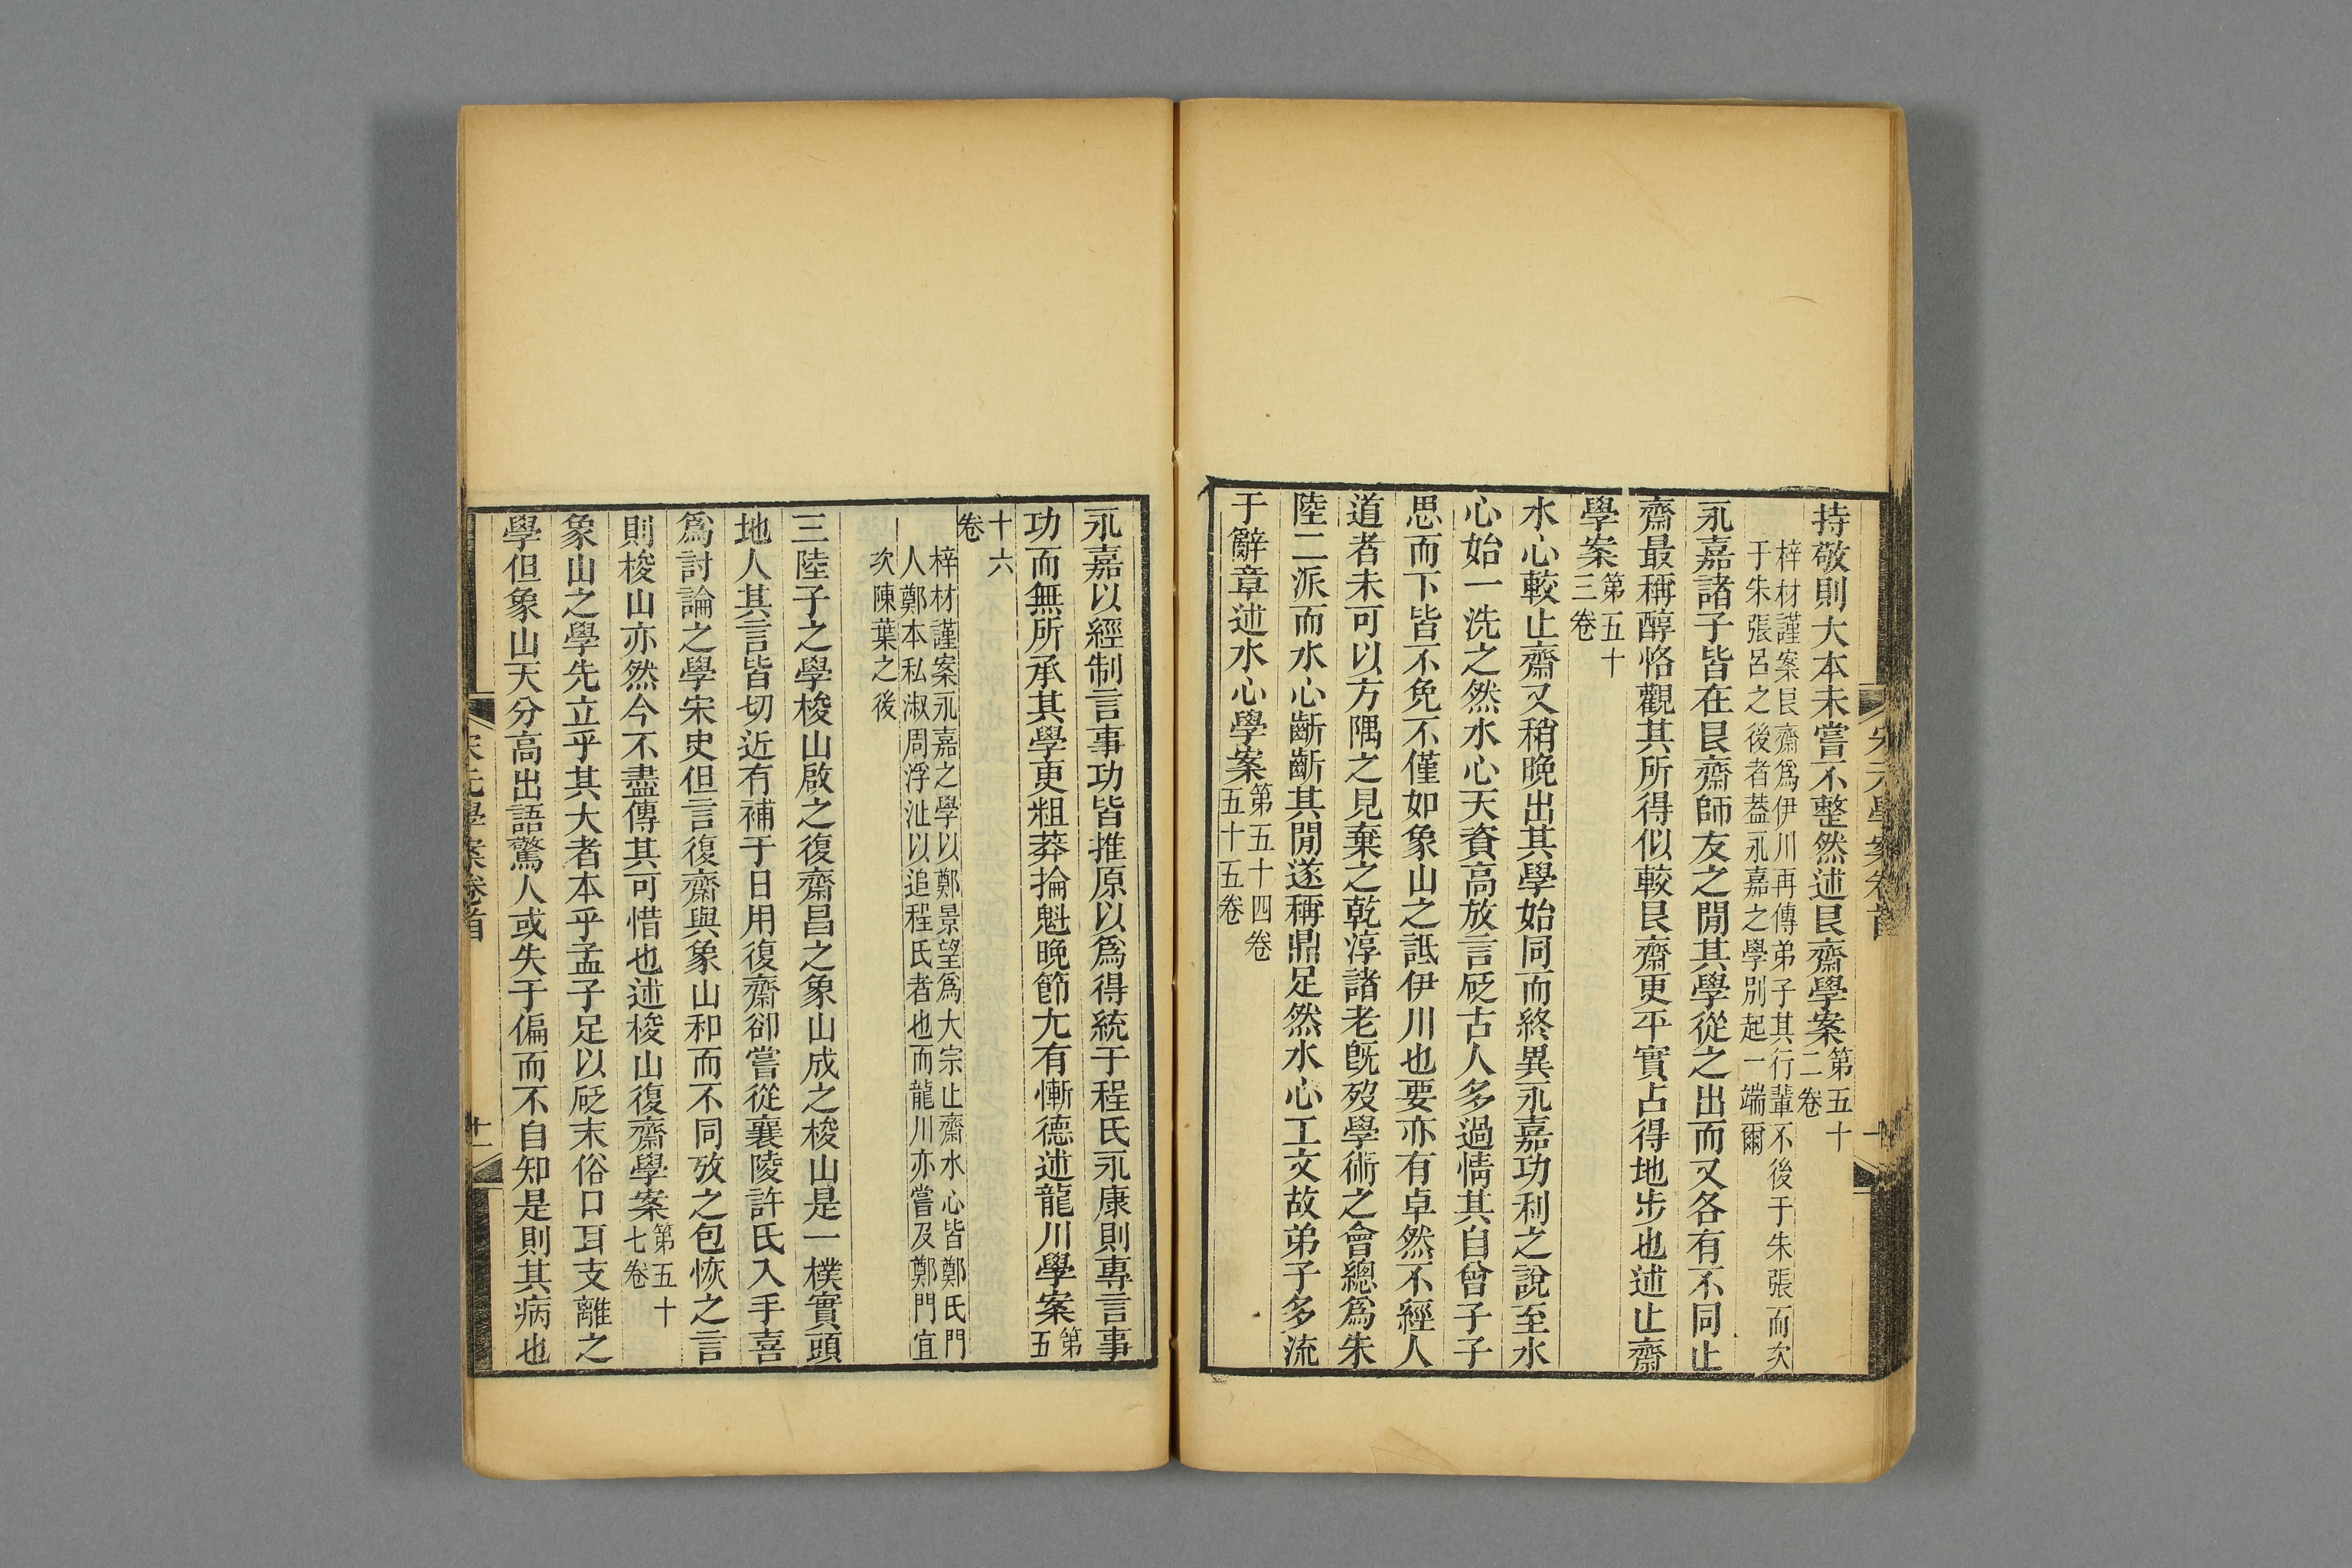 持敬則大本未嘗不整然述艮齋學案第五十二卷
梓材謹案艮齋爲伊川再傳弟子其行輩不後于朱張而次
于朱張呂之後者葢永嘉之學別起一端爾
永嘉諸子皆在艮齋師友之閒其學從之出而又各有不同止
齋最稱醇恪觀其所得似較艮齋更平實占得地步也述止齋
學案第五十三卷
水心較止齋又稍晚出其學始同而終異永嘉功利之說至水
心始一洗之然水心天資高放言砭古人多過情其自曾子子
思而下皆不免不僅如象山之詆伊川也要亦有卓然不經人
道者未可以方隅之見棄之乾淳諸老旣歿學術之會總爲朱
陸二派而水心齗齗其閒遂稱鼎足然水心工文故弟子多流
于辭章述水心學案第五十四卷五十五卷
永嘉以經制言事功皆推原以爲得統于程氏永康則專言事
功而無所承其學更粗莽掄魁晚節尤有慚德述龍川學案第五
十六卷
梓材謹案永嘉之學以鄭景望爲大宗止齋水心皆鄭氏門
人鄭本私淑周浮沚以追程氏者也而龍川亦嘗及鄭門宜
次陳葉之後
三陸子之學梭山啟之復齋昌之象山成之梭山是一樸實頭
地人其言皆切近有補于日用復齋卻嘗從襄陵許氏入手喜
爲討論之學宋史但言復齋與象山和而不同攷之包恢之言
則梭山亦然今不盡傳其可惜也述梭山復齋學案第五十七卷
象山之學先立乎其大者本乎孟子足以砭末俗口耳支離之
學但象山天分高出語驚人或失于偏而不自知是則其病也
宋元學案卷首
十一